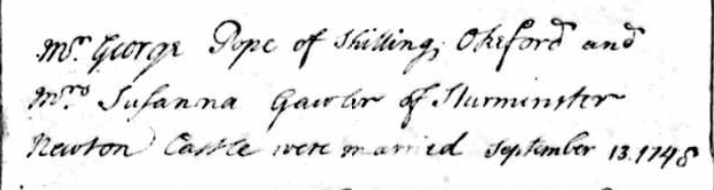 Mr. George Pope of Shilling; Okeford and
Mrs Susanna Gawler of Sturminster
Newton Castle were married September 13. 1748